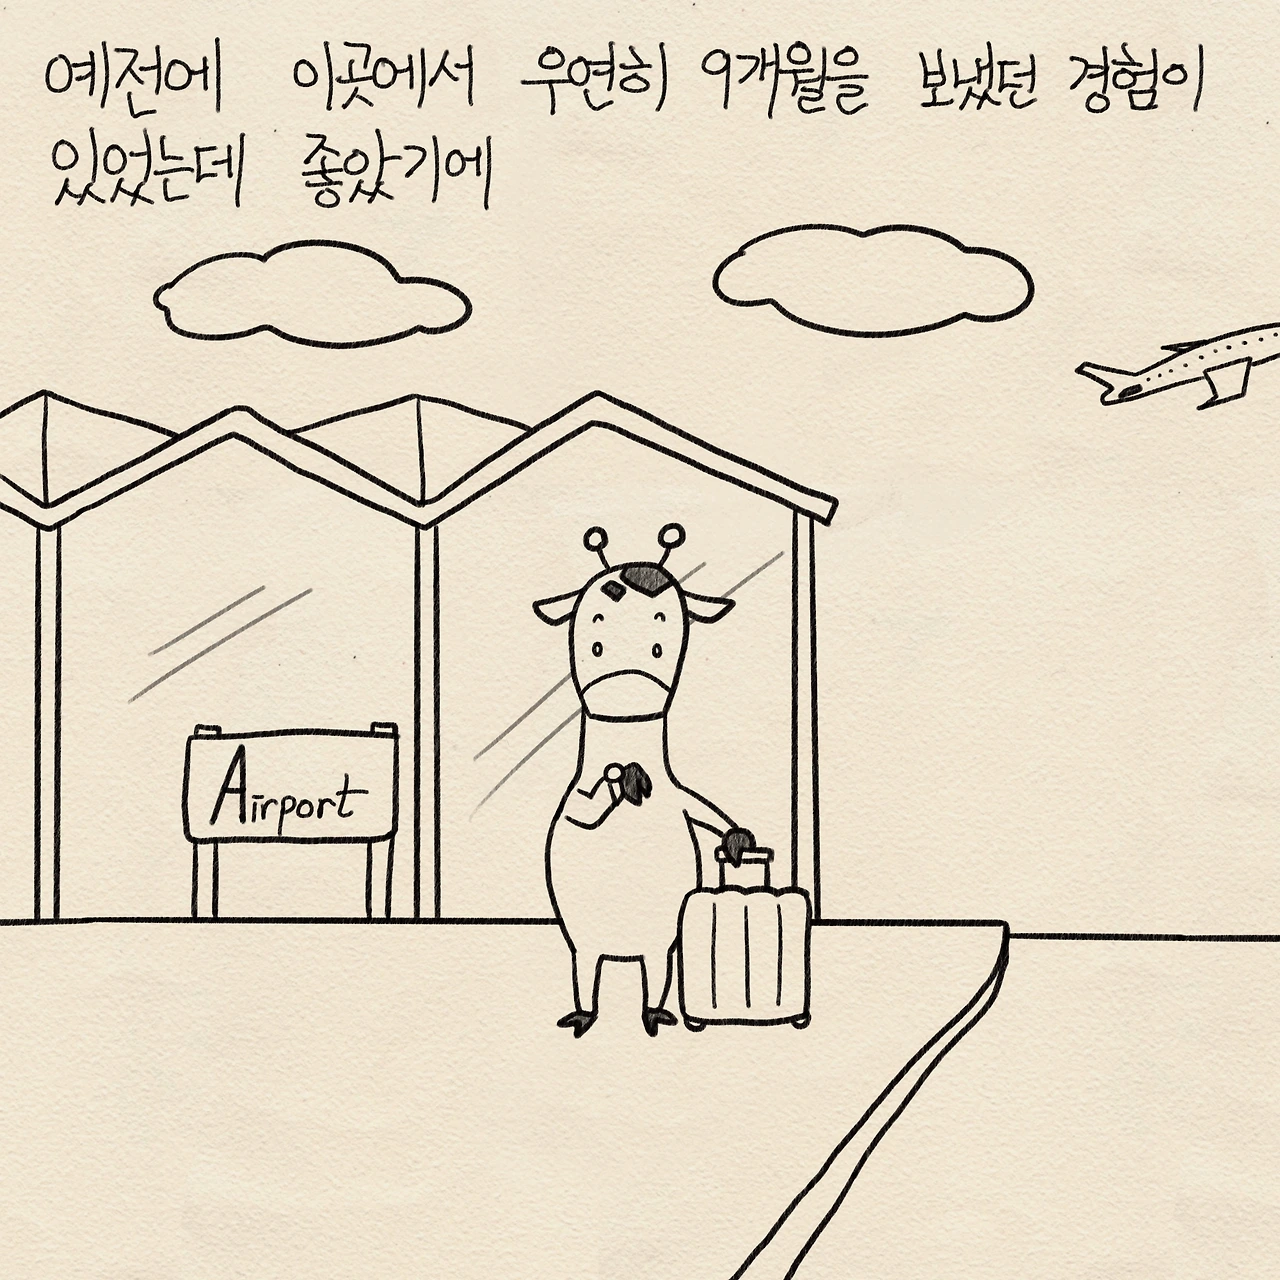 예전에 이곳에서 우연히 9개월을 보냈던 경험이
있었는데 좋았기에
Airport